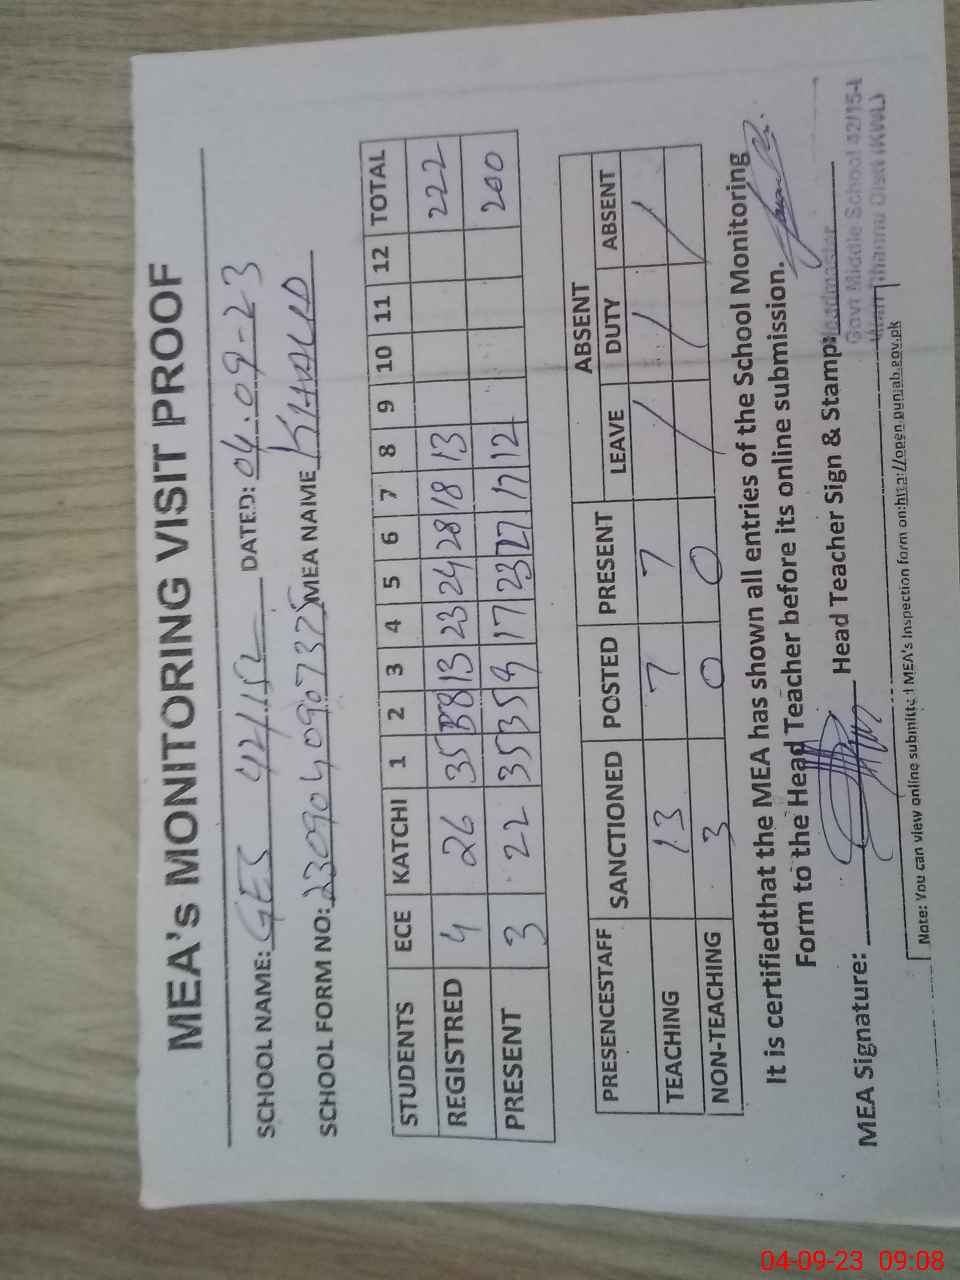 MEA's MONITORING VISIT PROOF
SCHOOL NAME: GES 42/15L DATED: 04.09-23
SCHOOL FORM NO: 2309040907325 MEA NAME KHALID
STUDENTS ECE KATCHI 1 2 3 4 5 6 7 8 9 10 11 12 TOTAL
REGISTRED 4 26 35 38 13 23 24 28 18 13 222
PRESENT 3 22 35 35 9 17 23 27 17 12 200
PRESENCESTAFF SANCTIONED POSTED PRESENT ABSENT
LEAVE DUTY ABSENT
TEACHING 13 7 7 / / /
NON-TEACHING 3 0 0
It is certifiedthat the MEA has shown all entries of the School Monitoring
Form to the Head Teacher before its online submission.
MEA Signature: Head Teacher Sign & Stamp:
Headmaster
Govt Middle School 42/15-L
Mian Channu Distt (KWL)
Note: You can view online submitted MEA's Inspection form on:http://open.punjab.gov.pk
04-09-23 09:08